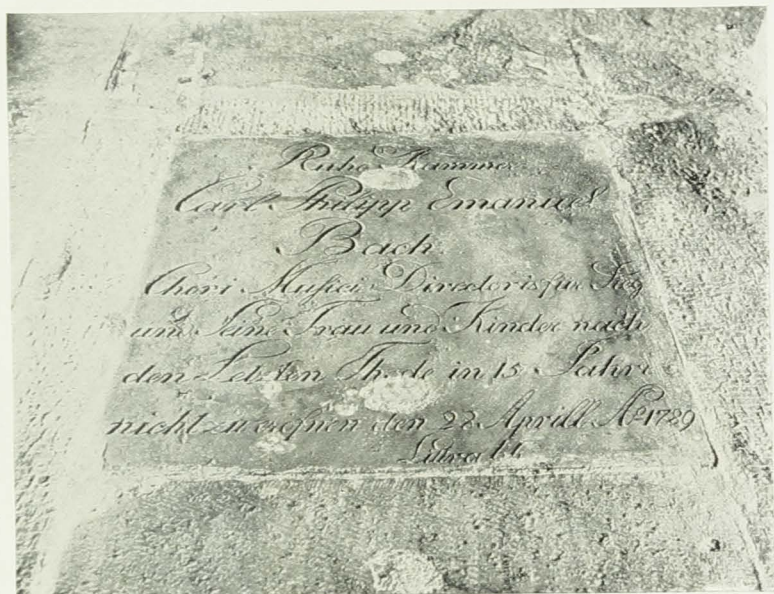 Ruhe Kammer
Carl Philipp Emanuel
Bach
Chori Musici Directoris für Sig
und Seine Frau und Kinder nach
den Letzten Thode in 15 Jahre
nicht zu eröfnen den 22 Aprill Aº 1789
3